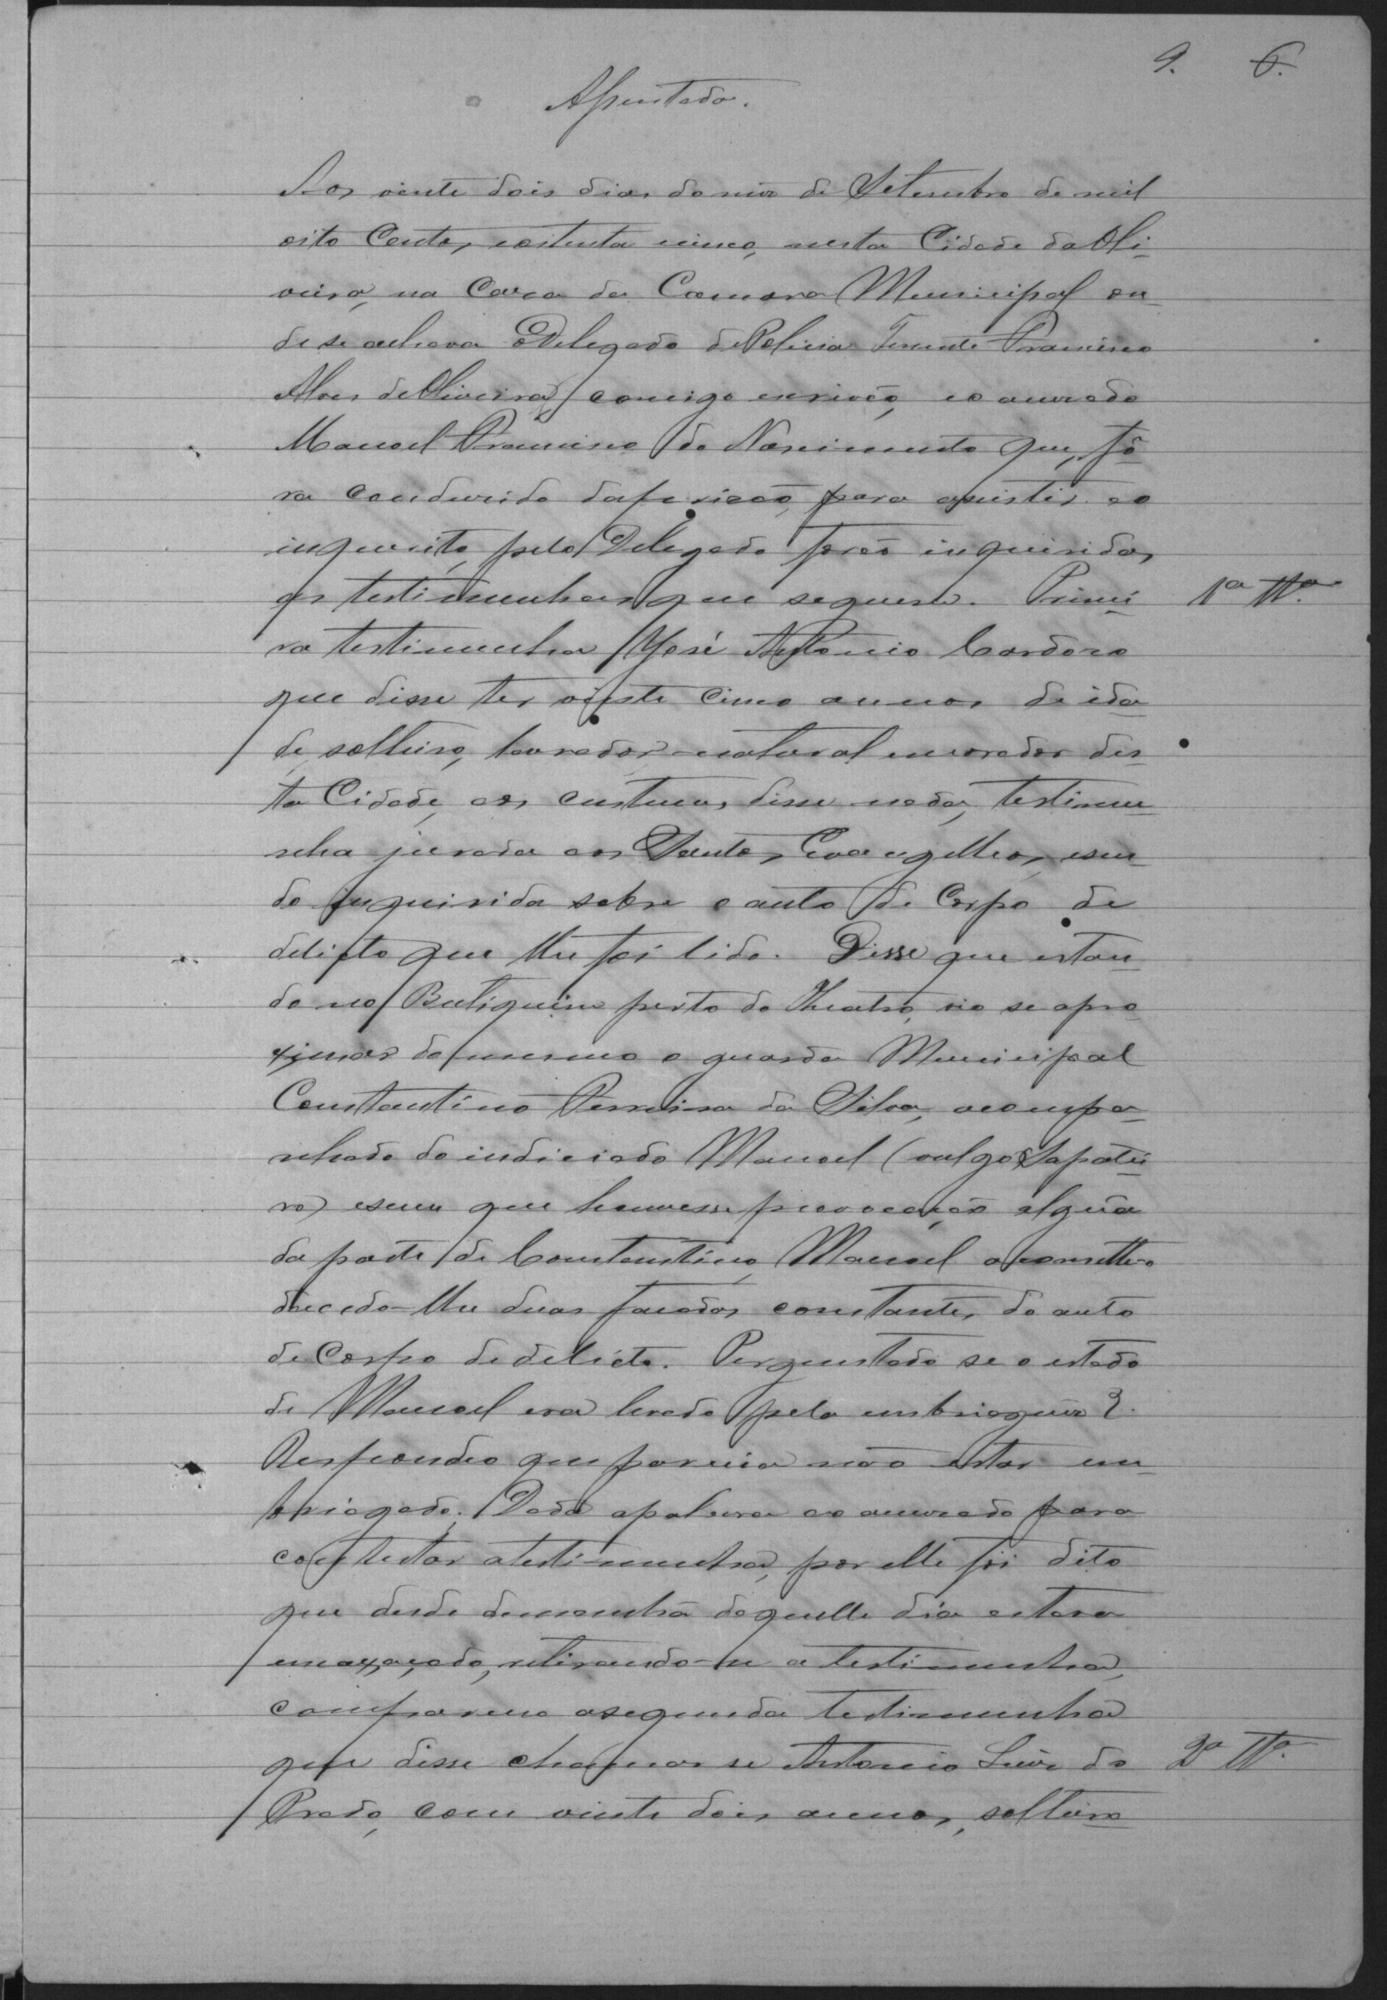 9. 6.
Assentada.
Aos vinte dois dias do mez de Setembro de mil
oito centos e oitenta cinco, nesta Cidade da Oli-
veira, na Casa da Camara Municipal on-
de se achava o Delegado de Policia Tenente Francisco
Alves de Oliveira, comigo escrivão, e o accusado
Manoel Francisco do Nascimento que, fô-
ra conduzido da prizão, para assistir ao
inquerito, pelo Delegado forão inquiridas,
as testimunhas que seguem. Primei-
1a Tta.
ra testimunha José Antonio Cardozo
que disse ter vinte cinco annos de ida-
de, solteiro, lavrador natural e morador des-
ta Cidade, aos custumes disse nada, testimu-
nha jurada aos Santos Evangelhos, e sen-
do inquirida sobre o auto de Corpo de
delicto que lhe foi lido. Disse que estan-
do no Butiquim perto do Theatro, vio se apro-
ximar do mesmo o guarda Municipal
Constantino Ferreira da Silva, acompa-
nhado do indiciado Manoel (vulgo Sapatei-
ro) e sem que houvesse provocação algũa
da parte de Constantino, Manoel acometteo
dando-lhe duas facadas constantes do auto
de Corpo de delicto. Perguntado se o estado
de Manoel era levado pela embriaguez?
Respondeo que parecia não estar em-
briagado. Dada a palavra ao accusado para
contestar a testimunha, por elle foi dito
que desde demanhã daquelle dia estava
encaxaçado, retirando-se a testimunha,
compareceo a segunda testimunha
que disse chamar se Antonio Luiz do
2a Tta.
Prado, com vinte dois annos, solteiro